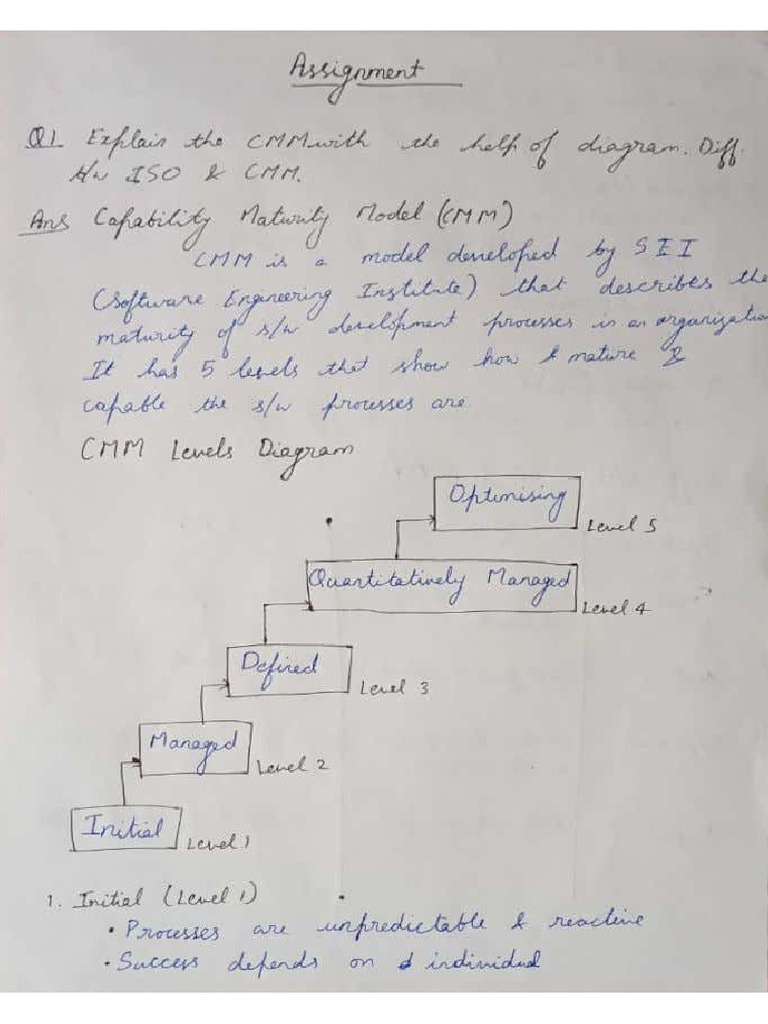 Assignment
Q1. Explain the CMM with the help of diagram. Diff.
b/w ISO & CMM.
Ans Capability Maturity Model (CMM)
CMM is a model developed by SEI
(Software Engineering Institute) that describes the
maturity of s/w development processes in an organization
It has 5 levels that show how mature &
capable the s/w processes are.
CMM Levels Diagram
Optimising
Level 5
Quantitatively Managed
Level 4
Defined
Level 3
Managed
Level 2
Initial
Level 1
1. Initial (Level 1)
• Processes are unpredictable & reactive
• Success depends on individual